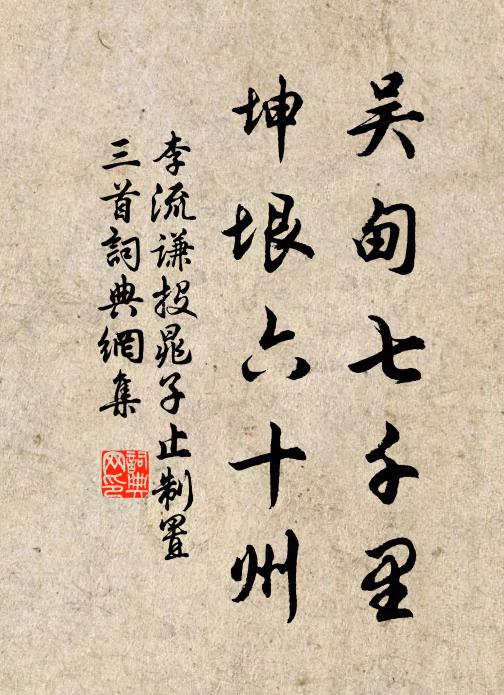 吴甸七千里
坤垠六十州
李流谦投晁子止制置
三首詞典網集
詞典网印